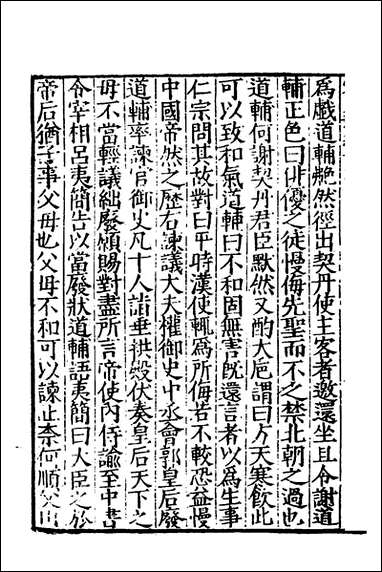 為戲道輔艴然徑出契丹使主客者邀還坐且令謝道
輔正色曰俳優之徒慢侮先聖而不之禁北朝之過也
道輔何謝契丹君臣默然又酌大巵謂曰方天寒飲此
可以致和氣道輔曰不和固無害旣還言者以為生事
仁宗問其故對曰平時漢使輒為所侮若不較恐益慢
中國帝然之歷右諫議大夫權御史中丞會郭皇后廢
道輔率諫官御史凡十人詣垂拱殿伏奏皇后天下之
母不當輕議絀廢願賜對盡所言帝使內侍諭至中書
令宰相呂夷簡告以當廢狀道輔語夷簡曰大臣之於
帝后猶子事父母也父母不和可以諫止柰何順父出